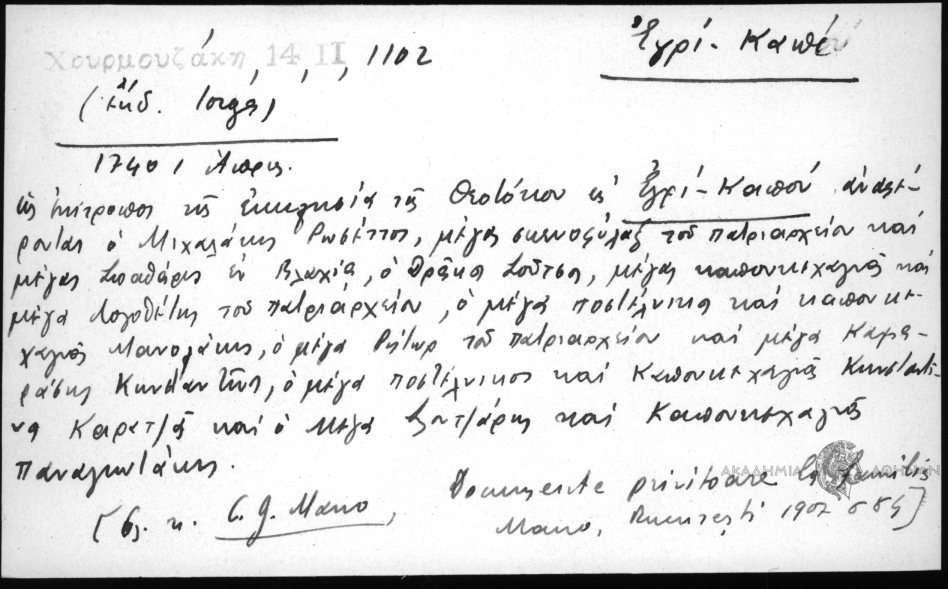 Χουρμουζάκη 14 II, 1102
Ἐγρί-Καπού
(ἔκδ. Iorga)
1740, Ἀπρίλ.
ὡς ἐπίτροποι τῆς ἐκκλησία τῆς Θεοτόκου εἰς Ἐγρί-Καπού ἀναφέ-
ρονται ὁ Μιχαλάκης Ρωσέττος, μέγας σκευοφύλαξ τοῦ πατριαρχείου καί
μέγας Σπαθάρης ἐν Βλαχίᾳ, ὁ Δράκος Σούτσος, μέγας καπουκεχαγιᾶς καί
μέγα Λογοθέτης τοῦ πατριαρχείου, ὁ μέγας ποστέλνικος καί καπουκε-
χαγιᾶς Μανολάκης, ὁ μέγα Ρήτωρ τοῦ πατριαρχείου καί μέγα Καμα-
ράσης Κωνσταντῖνος, ὁ μέγα ποστέλνικος καί Καπουκεχαγιᾶς Κωνσταντῖ-
νο Καρατζᾶς καί ὁ Μέγα Σουτζάρης καί Καπουκεχαγιᾶς
Παναγιωτάκης.
ΑΚΑΔΗΜΙΑ ΑΘΗΝΩΝ
[βλ. κ. C. G. Mano, Documente privitoare la familia
Mano, Bucureşti 1907 σ 84]